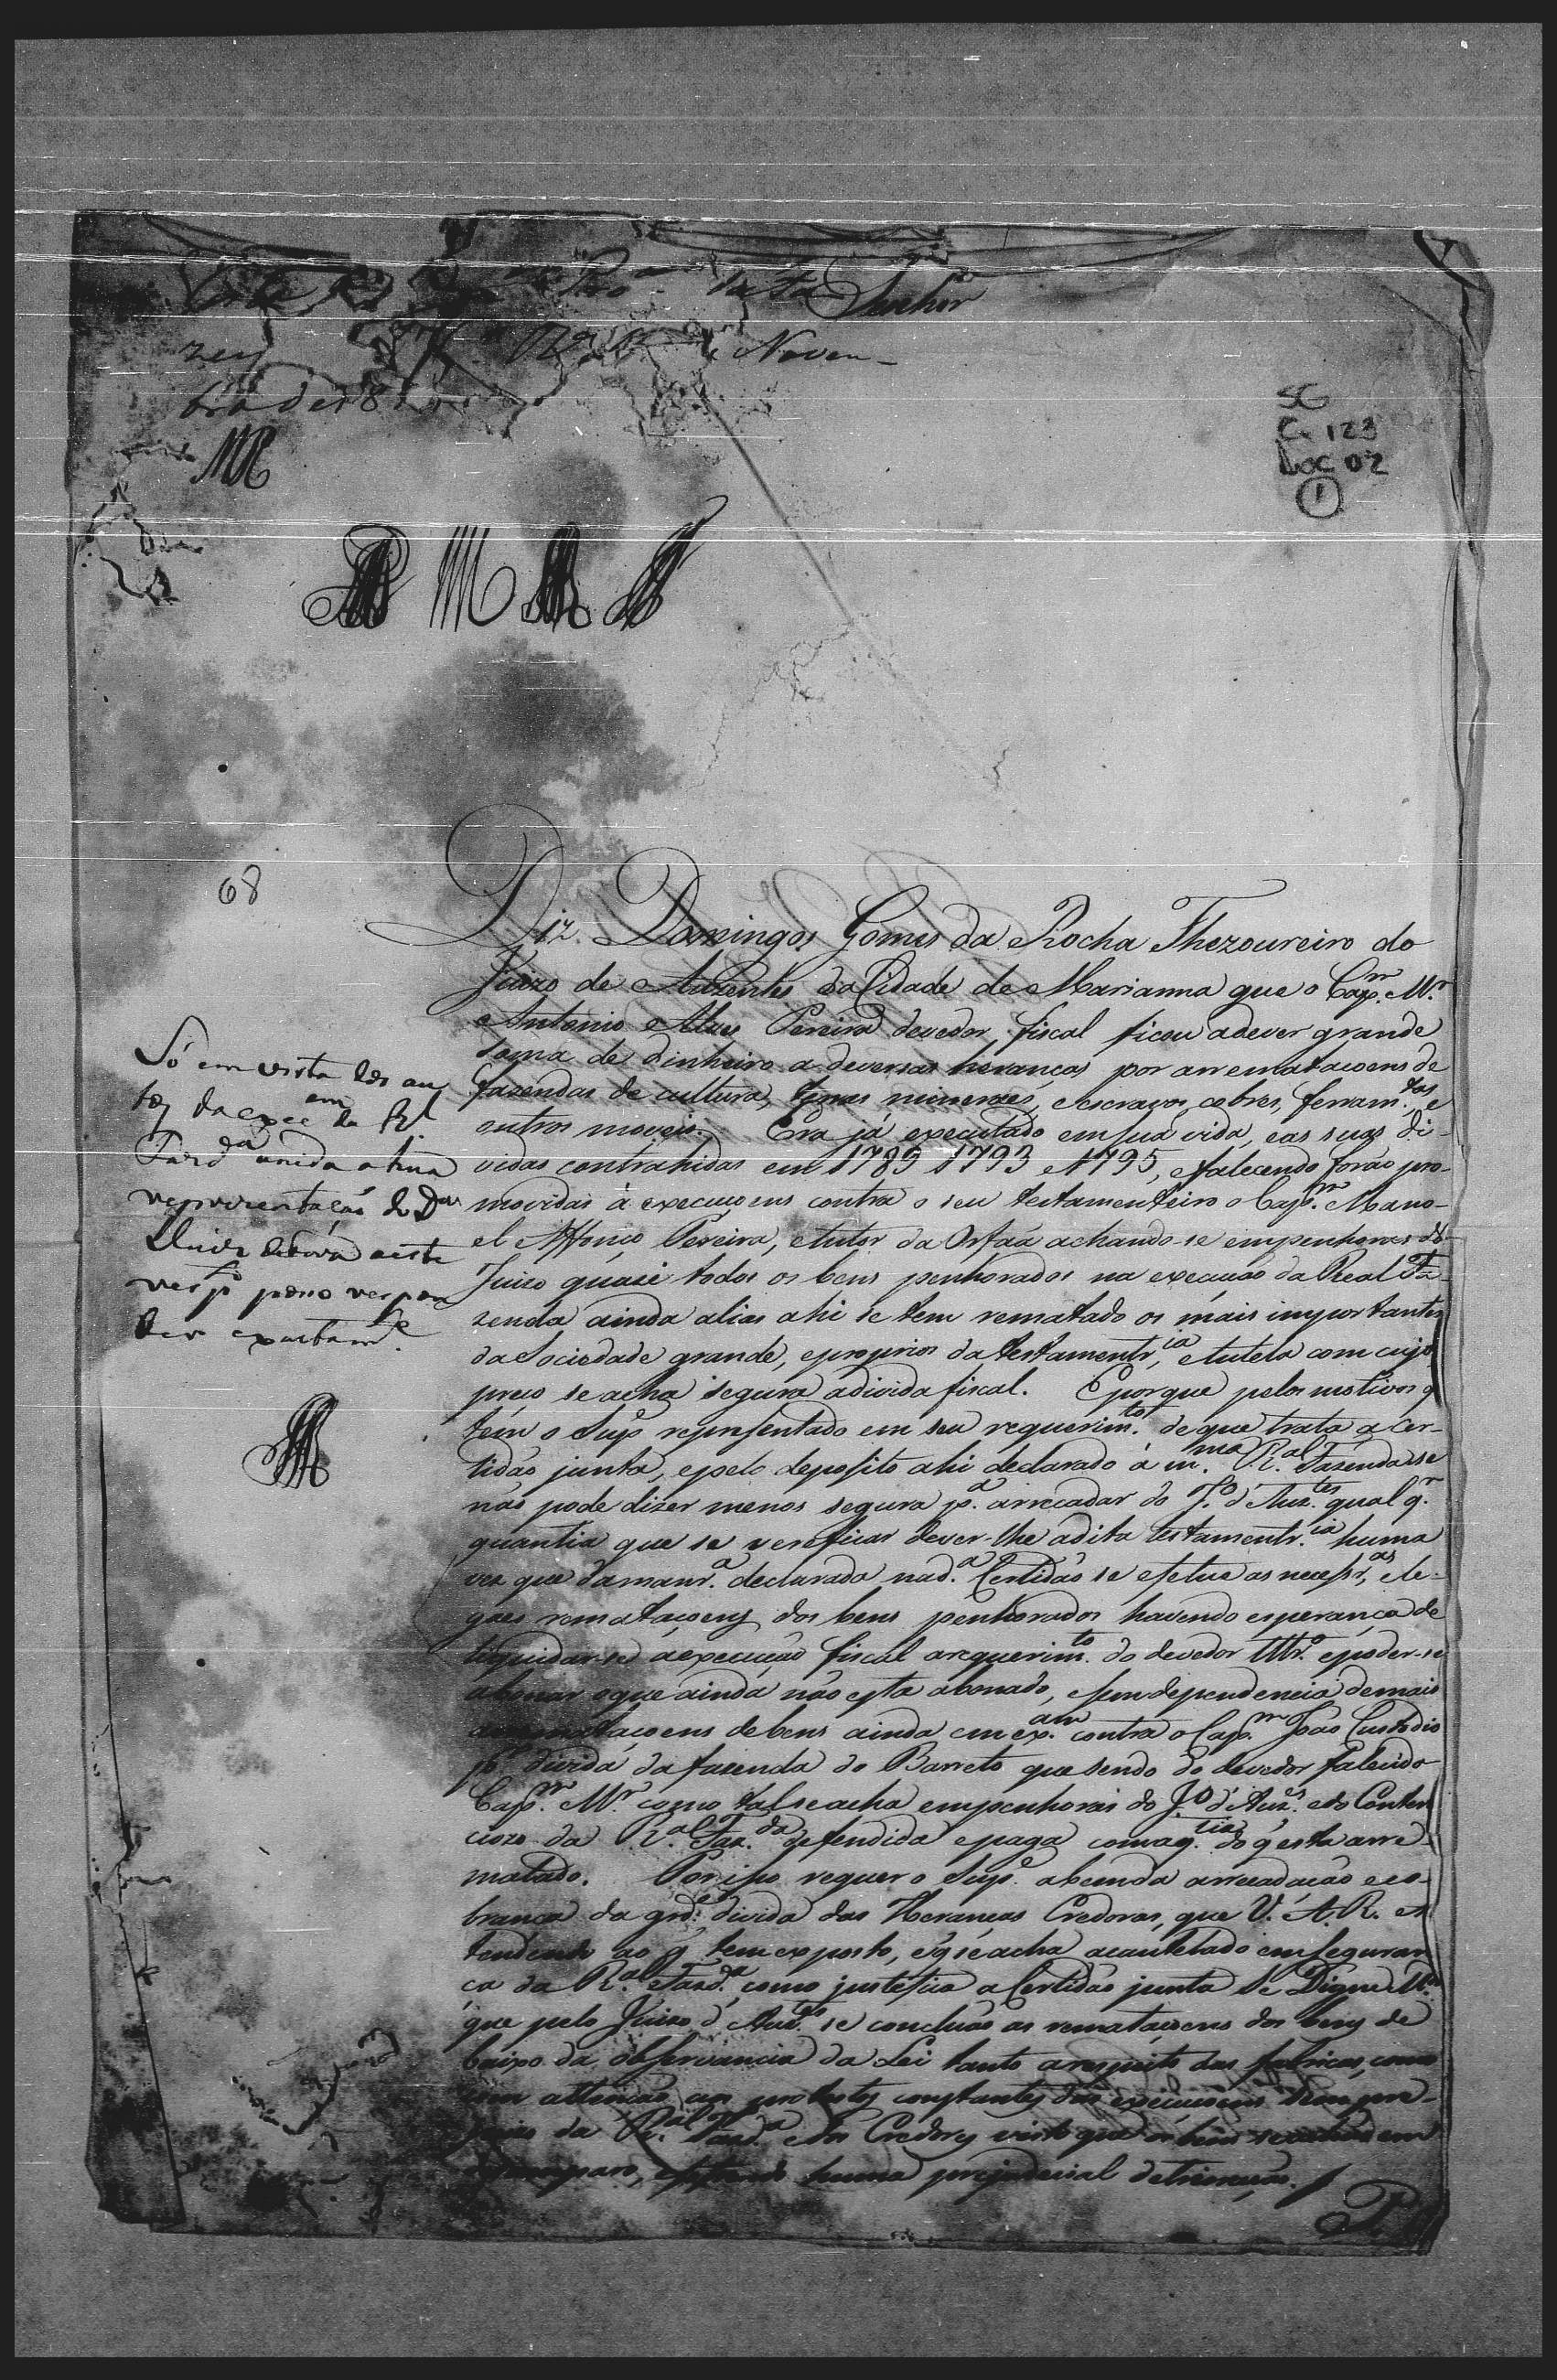 Senhor
Novem-
bro de 18
SC
Cx 123
Doc 02
1
68
Diz Domingos Gomes da Rocha Thezoureiro do
Juizo de Auzentes da Cidade de Marianna que o Cap.m M.r
Antonio Alves Pereira devedor fiscal ficou a dever grande
soma de dinheiro a deversas heranças por arremataçoens de
fazendas de cultura, terras mineraes, escravos cobres, ferram.tas, e
outros moveis. Era já executado em sua vida, e as suas di-
vidas contrahidas em 1789 1793 e 1795, e falecendo forão pro-
movidas á execuçoens contra o seu testamenteiro o Cap.m Mano-
el Affonço Pereira, e tutor da Orfaã achando-se em penhoras do
Juizo quazi todos os bens penhorados na execução da Real Fa-
zenda ainda alias ahi se tem rematado os mais importantes
da Sociedade grande, e proprios da testamentr.ia, e tutela com cujo
preço se acha segura a divida fiscal. E porque pelos motivos q
tem o Sup.e reprezentado em seu requerim.to de que trata a Cer-
tidão junta, e pelo deposito ahi declarado á m.ma R.al Fazenda se
não pode dizer menos segura p.a arrecadar do J.o d'Auz.tes qual q.r
quantia que se verificar dever-lhe a dita testamentr.ia huma
vez que da manr.a declarada na d.a Certidão se efetue as necessr.as, e le-
gaes remataçoens dos bens penhorados havendo esperança de
liquidar-se a execução fiscal a requerim.to do devedor e poder-se
abonar o que ainda não esta abonado, e sem dependencia de mais
arremataçoens de bens ainda em ex.am contra o Cap.m João Custodio
p.r divida da fazenda do Barreto que sendo do devedor falecido
Cap.m M.r como tal se acha em penhoras do J.o d'Auz.es e do Conten
ciozo da R.al Faz.da defendida e paga com a q.tia do q esta arre-
matado. Por isso requer o Sup.e a bem da arrecadação e co-
brança da grd.e divida das Heranças Credoras, que V. A. R. at
tendendo ao q tem exposto, e q se acha acautelado em seguran
ça da R.al Fazd.a como justifica a Certidão junta Se Digne M.
que pelo Juizo d'Auz.es se concluão as remataçoens dos bens de
baixo da observancia da Lei tanto a respeito das fabricas, como
com attenção aos protestos constantes das execuçoens sem pre-
juizo da R.al Fazd.a e dos Credores visto que os bens se achão em
dezamparo, huma prejudicial deterioração.
Só em vista dos au
tos da exec.em da R.l
Fazd.a unida a huma
reprezentação do D.or
Juiz devera este
resp.o para respon
der exactam.e